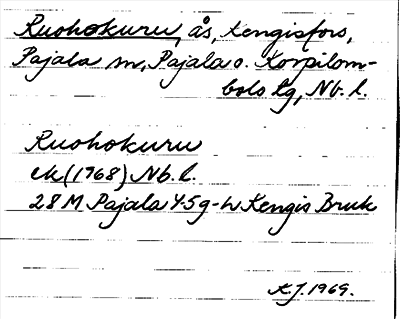 Ruohokuru, ås, Kengisfors,
Pajala sn, Pajala o. Korpilom-
bolo tg, Nb. l.
Ruohokuru
ek (1968) Nb. l.
28 M Pajala 45g-h Kengis Bruk
K.J. 1969.